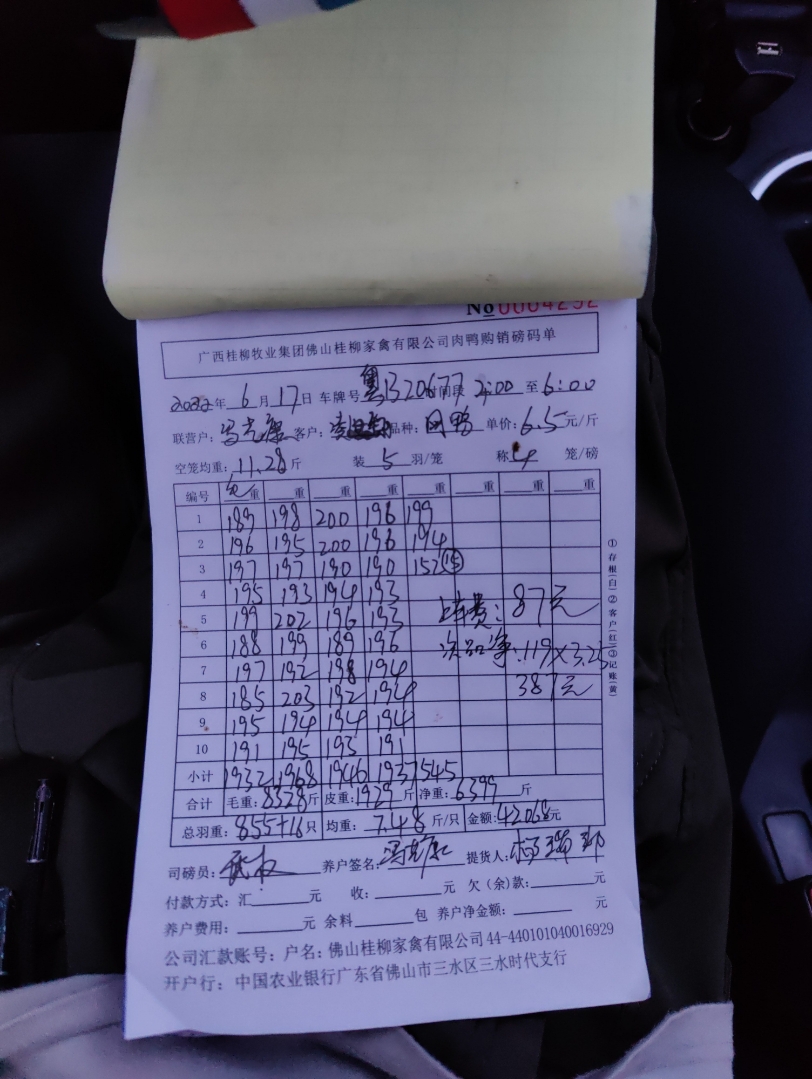 No 0004252
广西桂柳牧业集团佛山桂柳家禽有限公司肉鸭购销磅码单
2022年 6 月 17 日 车牌号 粤J20677 时间段 2:00 至 6:00
联营户: 客户: 品种: 肉鸭 单价: 6.5 元/斤
空笼均重: 11.28 斤 装 5 羽/笼 称 4 笼/磅
编号 毛重 重 重 重 重 重 重
1 189 198 200 196 199
2 196 195 200 196 194
3 197 197 190 190 152 (15)
4 195 193 194 193
5 199 202 196 193 费: 87元
6 188 199 189 196 次品净: 119×3.25
7 197 192 198 194
8 185 203 192 194 387元
9 195 194 194 194
10 191 195 193 191
小计 1932 1968 1946 1937 545
合计 毛重: 8328 斤 皮重: 1929 斤 净重: 6399 斤
总羽重: 855+16 只 均重: 7.48 斤/只 金额: 42068 元
司磅员: 养户签名: 提货人:
付款方式: 汇 元 收: 元 欠(余)款: 元
养户费用: 元 余料 包 养户净金额: 元
公司汇款账号: 户名: 佛山桂柳家禽有限公司 44-440101040016929
开户行: 中国农业银行广东省佛山市三水区三水时代支行
①存根(白)②客户(红)③记账(黄)